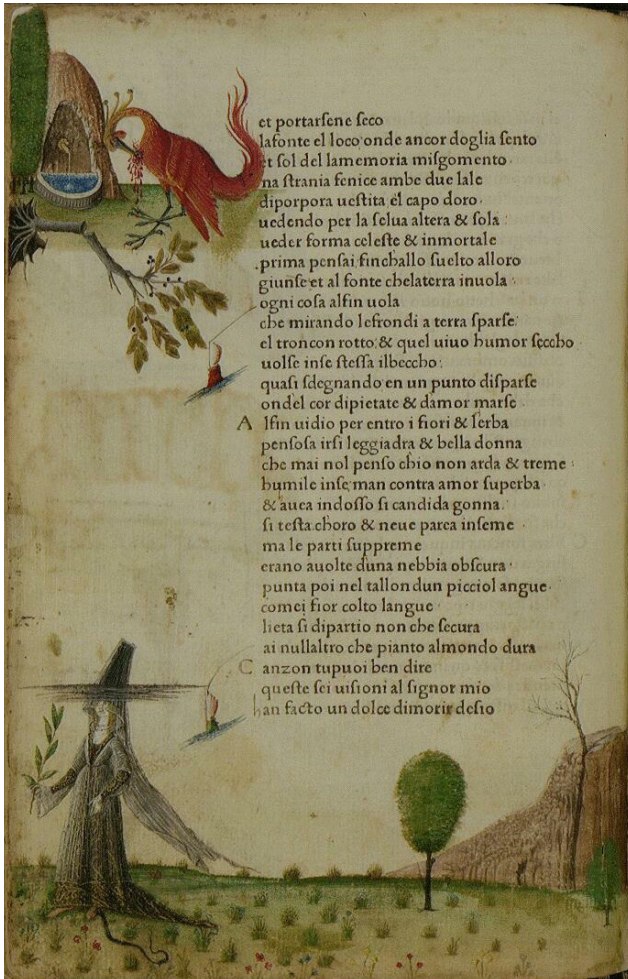 et portarsene seco
lafonte el loco onde ancor doglia sento
et sol del lamemoria misgomento.
na strania fenice ambe due lale
diporpora uestita el capo doro.
uedendo per la selua altera & sola
ueder forma celeste & inmortale
prima pensai finchallo suelto alloro
giunse et al fonte chelaterra inuola
ogni cosa alfin uola
che mirando lefrondi a terra sparse
el troncon rotto & quel uiuo humor seccho
uolse inse stessa ilbeccho
quasi sdegnando en un punto disparse
ondel cor dipietate & damor marse
A lfin uidio per entro i fiori & lerba
pensosa irsi leggiadra & bella donna
che mai nol penso chio non arda & treme
humile inse man contra amor superba
& auea indosso si candida gonna
si testa choro & neue parea inseme
ma le parti suppreme
erano auolte duna nebbia obscura
punta poi nel tallon dun picciol angue
comei fior colto langue
lieta si dipartio non che secura
ai nullaltro che pianto almondo dura
C anzon tupuoi ben dire
queste sei uisioni al signor mio
han facto un dolce dimorir desio